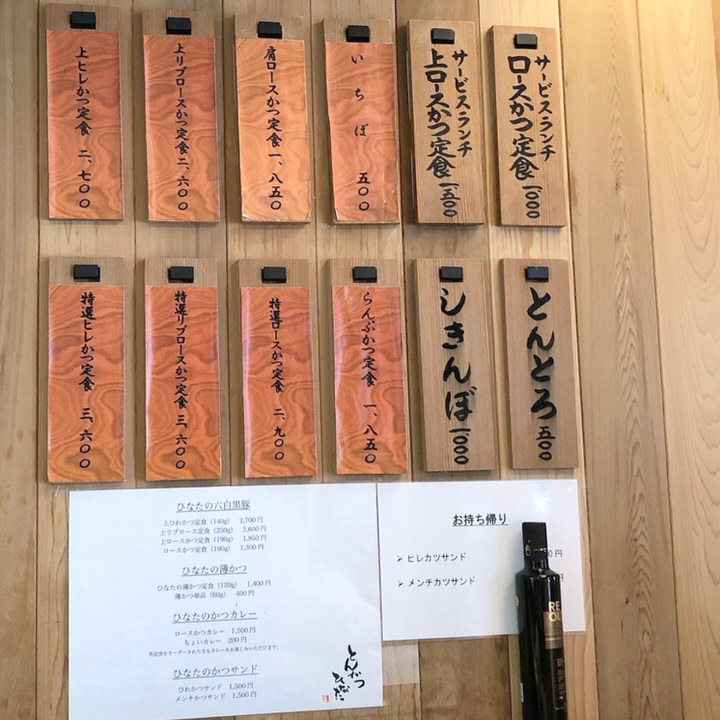 サービスランチ
ロースかつ定食 一〇〇〇
サービスランチ
上ロースかつ定食 一五〇〇
いちぼ 五〇〇
肩ロースかつ定食 一、八五〇
上リブロースかつ定食 二、六〇〇
上ヒレかつ定食 二、七〇〇
とんとろ 五〇〇
しきんぼ 一〇〇〇
らんぷかつ定食 一、八五〇
特選ロースかつ定食 二、九〇〇
特選リブロースかつ定食 三、六〇〇
特選ヒレかつ定食 三、六〇〇
ひなたの六白黒豚
上ひれかつ定食 (140g) 2,700円
上リブロース定食 (250g) 2,600円
上ロースかつ定食 (190g) 1,850円
ロースかつ定食 (190g) 1,300円
ひなたの薄かつ
ひなたの薄かつ定食 (120g) 1,400円
薄かつ単品 (60g) 400円
ひなたのかつカレー
ロースかつカレー 1,500円
ちょいカレー 200円
各定食をオーダーされた方もカレーをお楽しみいただけます。
ひなたのかつサンド
ひれかつサンド 1,500円
メンチかつサンド 1,500円
とんかつ
ひなた
お持ち帰り
➢ ヒレカツサンド 円
➢ メンチカツサンド